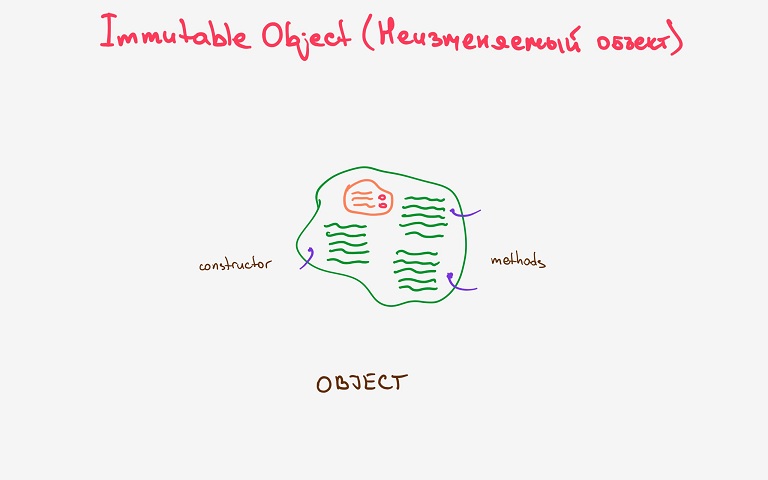 Immutable Object (Неизменяемый объект)
constructor
methods
OBJECT